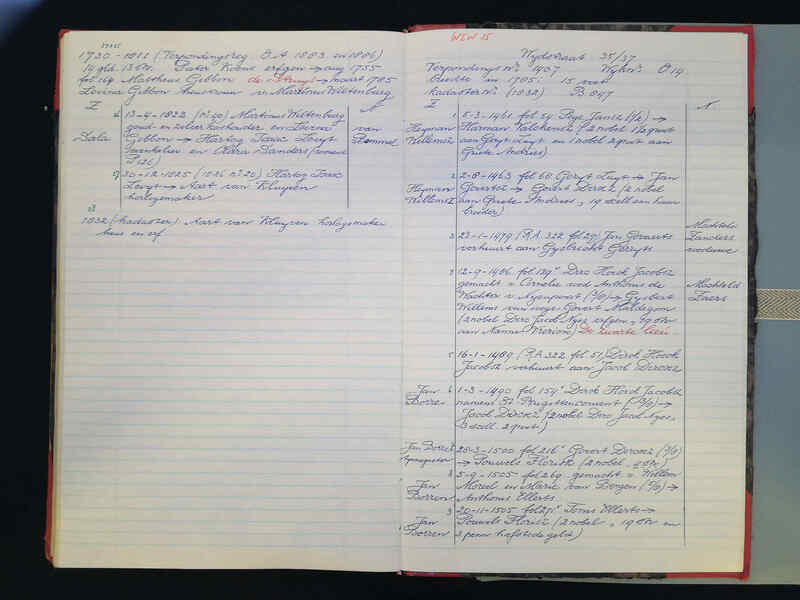 1730-1811 (Verpondingsreg. O.A. 1803 en 1806)
14 gld. 13 str. Pater erfgen → aug 1755
fol. 114 Mattheus Gibbon de Struys → maart 1785
Lovina Gibbon huisvrouw v. Martinus Wiltenburg
Z N
13-4-1822 (nº 40) Martinus Wiltenburg
goud- en zilver kashouder en Lovina
Gibbon → Hartog Isaac Levyt
en Clara Sanders
P 126)
Sala
van Rommel
30-12-1825 (1826 nº 20) Hartog Isaac
Levyt → Aart van Kluyven
horlogemaker
1832 (kadaster) Aart van Kluyven horlogemaker
huis en erf.
WSW 25
Wydstraat 35/37
Verpondings Nº 1407 Wyk Nº O 19
Breedte in 1785: 15 voet
Kadaster Nº (1032) B 847
Z N
Heyman Willemsz
1 5-3-1461 fol 54 Jansz (½) →
Harman Valckensz (2 nobel 1½ groot
aan Geryt Luyt en 1 nobel 2 groot aan
Griete Andries)
Heyman Willemsz
2 2-8-1463 fol 68 Geryt Luyt → Jan
Govertsz → Govert Dircxz (2 nobel
aan Griete Andries, 19 schell aan haar
broeder)
3 23-1-1479 (R.A. 322 fol 29) Jan Govaerts
verhuurt aan Gysbrecht Gerryts
Machtelt Zanders
12-9-1486 fol 134ᵛ Dirc Hoick Jacobsz
gemacht v. Cornelie wed Anthonis de
Wachter v. Nyenpoort (½) → Gysbert
Willems vanwege Govert Maldegem
(2 nobel Dirc Jacob Nyes erfgen, 19 str
van Nanne Vrericx) De zwarte leeu
Machteld Zaers
5 16-1-1489 (R.A. 322 fol 51) Dirck Hoeck
Jacobsz verhuurt aan Jacob Dircxz
Jan Borre
6 1-3-1490 fol 154ᵛ Dirck Hoick Jacobsz
namens St Brigittenconvent (½) →
Jacob Dircxz (2 nobel Dirc Jacob Nyes,
3 schell. 2 groot)
Jan Borre
25-3-1500 fol 216ᵛ Govert Dircxz (½)
→ Pouwels Florisz (2 nobel,
Jan Borren
8 5-9-1505 fol 269 gemacht v. Willem
Morcel en Marie van Bergen (½) →
Anthonis Ellerts
Jan Borren
20-11-1505 fol 271ᵛ Tonis Ellerts →
Pouwels Florisz (2 nobel, 19 str en
2 penn hofstedegeld)